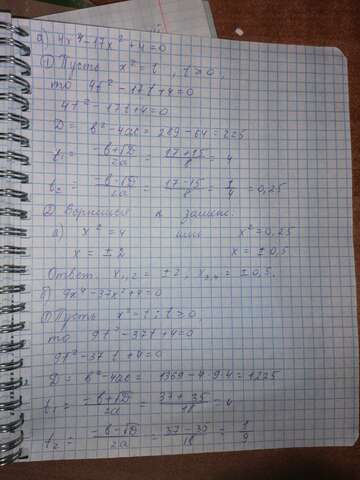 а) 4x⁴-17x²+4=0
① Пусть x²=t, t≥0,
то 4t²-17t+4=0
4t²-17t+4=0
D=b²-4ac=289-64=225
t₁=(-b+√D)/2a=(17+15)/8=4
t₂=(-b-√D)/2a=(17-15)/8=1/4=0,25
② Вернёмся к замене.
а) x²=4 или x²=0,25
x=±2 x=±0,5
Ответ. x₁,₂=±2, x₃,₄=±0,5.
б) 9x⁴-37x²+4=0
① Пусть x²=t; t≥0,
то 9t²-37t+4=0
9t²-37t+4=0
D=b²-4ac=1369-4·9·4=1225
t₁=(-b+√D)/2a=(37+35)/18=4
t₂=(-b-√D)/2a=(37-35)/18=1/9